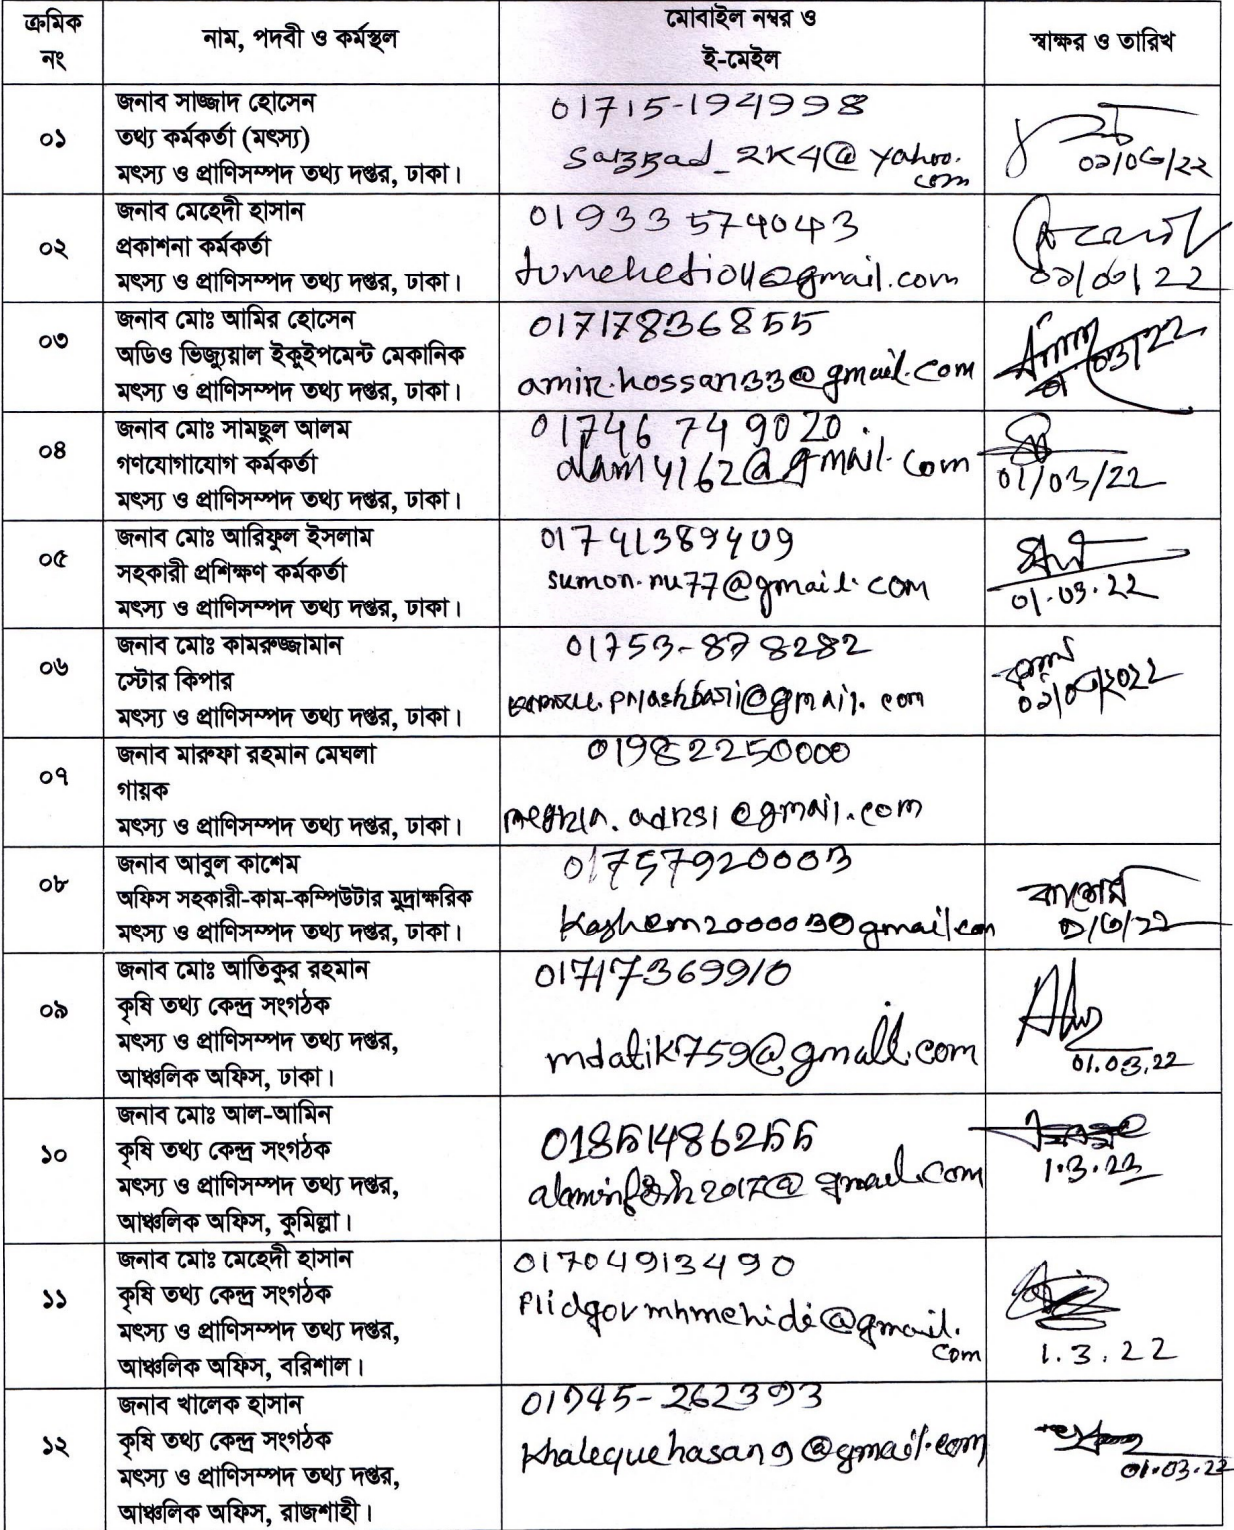 ক্রমিক নং
নাম, পদবী ও কর্মস্থল
মোবাইল নম্বর ও
ই-মেইল
স্বাক্ষর ও তারিখ
০১
জনাব সাজ্জাদ হোসেন
তথ্য কর্মকর্তা (মৎস্য)
মৎস্য ও প্রাণিসম্পদ তথ্য দপ্তর, ঢাকা।
01715-194998
০১/০৩/২২
০২
জনাব মেহেদী হাসান
প্রকাশনা কর্মকর্তা
মৎস্য ও প্রাণিসম্পদ তথ্য দপ্তর, ঢাকা।
01933574043
০১/০৩/২২
০৩
জনাব মোঃ আমির হোসেন
অডিও ভিজ্যুয়াল ইকুইপমেন্ট মেকানিক
মৎস্য ও প্রাণিসম্পদ তথ্য দপ্তর, ঢাকা।
01717836855
amir.hossan33@gmail.com
০৪
জনাব মোঃ সামছুল আলম
গণযোগাযোগ কর্মকর্তা
মৎস্য ও প্রাণিসম্পদ তথ্য দপ্তর, ঢাকা।
01746 749020
alam4162@gmail.com
01/03/22
০৫
জনাব মোঃ আরিফুল ইসলাম
সহকারী প্রশিক্ষণ কর্মকর্তা
মৎস্য ও প্রাণিসম্পদ তথ্য দপ্তর, ঢাকা।
01741389409
sumon.nu77@gmail.com
01.03.22
০৬
জনাব মোঃ কামরুজ্জামান
স্টোর কিপার
মৎস্য ও প্রাণিসম্পদ তথ্য দপ্তর, ঢাকা।
01753-878282
০১/০৩/২০২২
০৭
জনাব মারুফা রহমান মেঘলা
গায়ক
মৎস্য ও প্রাণিসম্পদ তথ্য দপ্তর, ঢাকা।
01982250000
০৮
জনাব আবুল কাশেম
অফিস সহকারী-কাম-কম্পিউটার মুদ্রাক্ষরিক
মৎস্য ও প্রাণিসম্পদ তথ্য দপ্তর, ঢাকা।
01757920003
kashem200003@gmail.com
কাশেম
০৯
জনাব মোঃ আতিকুর রহমান
কৃষি তথ্য কেন্দ্র সংগঠক
মৎস্য ও প্রাণিসম্পদ তথ্য দপ্তর,
আঞ্চলিক অফিস, ঢাকা।
01717369910
mdatik759@gmail.com
01.03.22
১০
জনাব মোঃ আল-আমিন
কৃষি তথ্য কেন্দ্র সংগঠক
মৎস্য ও প্রাণিসম্পদ তথ্য দপ্তর,
আঞ্চলিক অফিস, কুমিল্লা।
01851486255
alaminfish2017@gmail.com
1.3.22
১১
জনাব মোঃ মেহেদী হাসান
কৃষি তথ্য কেন্দ্র সংগঠক
মৎস্য ও প্রাণিসম্পদ তথ্য দপ্তর,
আঞ্চলিক অফিস, বরিশাল।
01704913490
flidgovmhmehidi@gmail.
com
1.3.22
১২
জনাব খালেক হাসান
কৃষি তথ্য কেন্দ্র সংগঠক
মৎস্য ও প্রাণিসম্পদ তথ্য দপ্তর,
আঞ্চলিক অফিস, রাজশাহী।
01745-262393
khalequehasan9@gmail.com
01.03.22